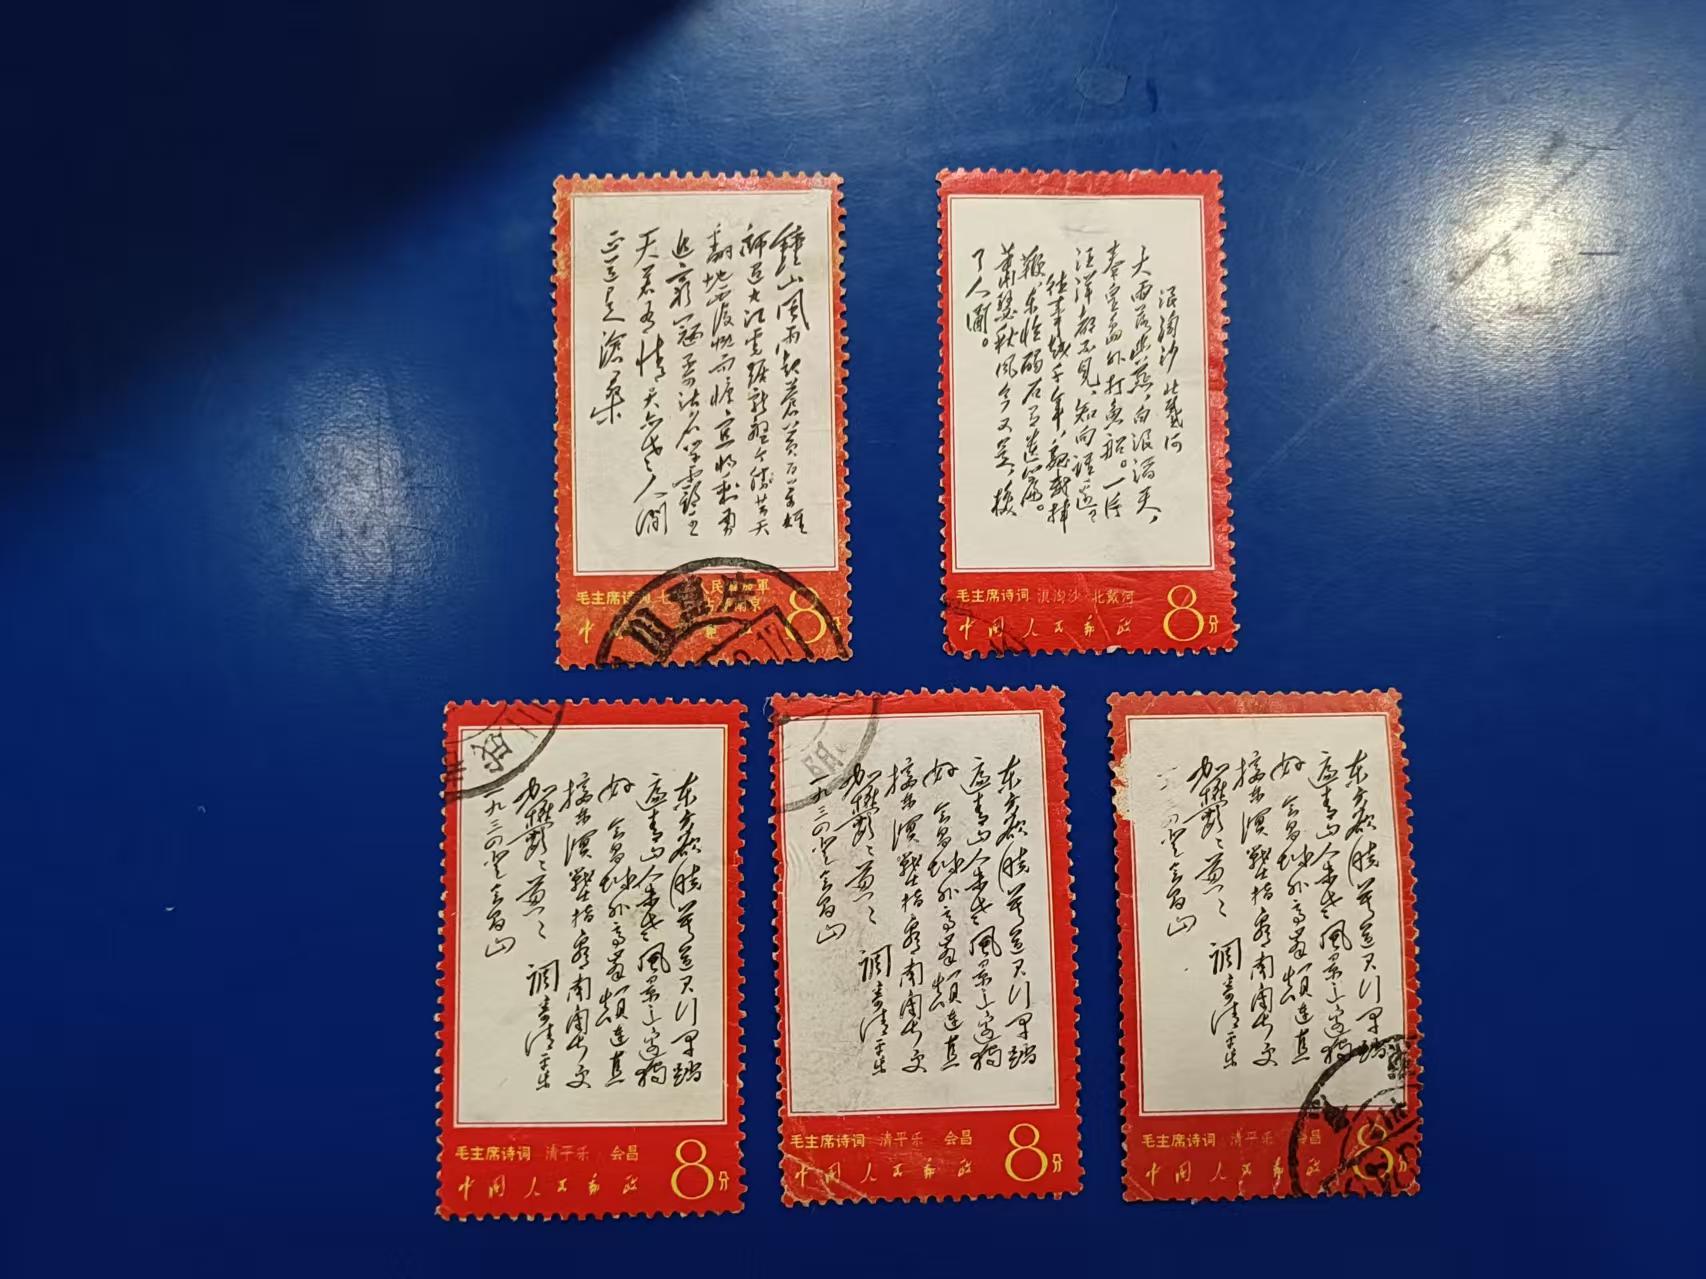 鐘山風雨起蒼黃百万雄
師過大江虎踞龍盤今勝昔天
翻地覆慨而慷宜將剩勇
追窮寇不可沽名學霸王
天若有情天亦老人間
正道是滄桑
毛主席诗词 七 人民 軍
南京
中 8分
浪淘沙 北戴河
大雨落幽燕，白浪滔天，
秦皇岛外打鱼船。一片
汪洋都不见，知向谁边？
往事越千年，魏武挥
鞭，东临碣石有遗篇。
萧瑟秋风今又是，换
了人间。
毛主席诗词 浪淘沙 北戴河
中国人民邮政 8分
东方欲晓莫道君行早踏
遍青山人未老風景这边独
好 会昌城外高峯颠连直
接东溟戰士指看南粤更
加欝〻葱〻 调寄清平乐
一九三四登会昌山
毛主席诗词 清平乐 会昌
中国人民邮政 8分
东方欲晓莫道君行早踏
遍青山人未老風景这边独
好 会昌城外高峯颠连直
接东溟戰士指看南粤更
加欝〻葱〻 调寄清平乐
一九三四登会昌山
毛主席诗词 清平乐 会昌
中国人民邮政 8分
东方欲晓莫道君行早踏
遍青山人未老風景这边独
好 会昌城外高峯颠连直
接东溟戰士指看南粤更
加欝〻葱〻 调寄清平乐
登会昌山
毛主席诗词 清平乐 会昌
中国人民邮政 8分